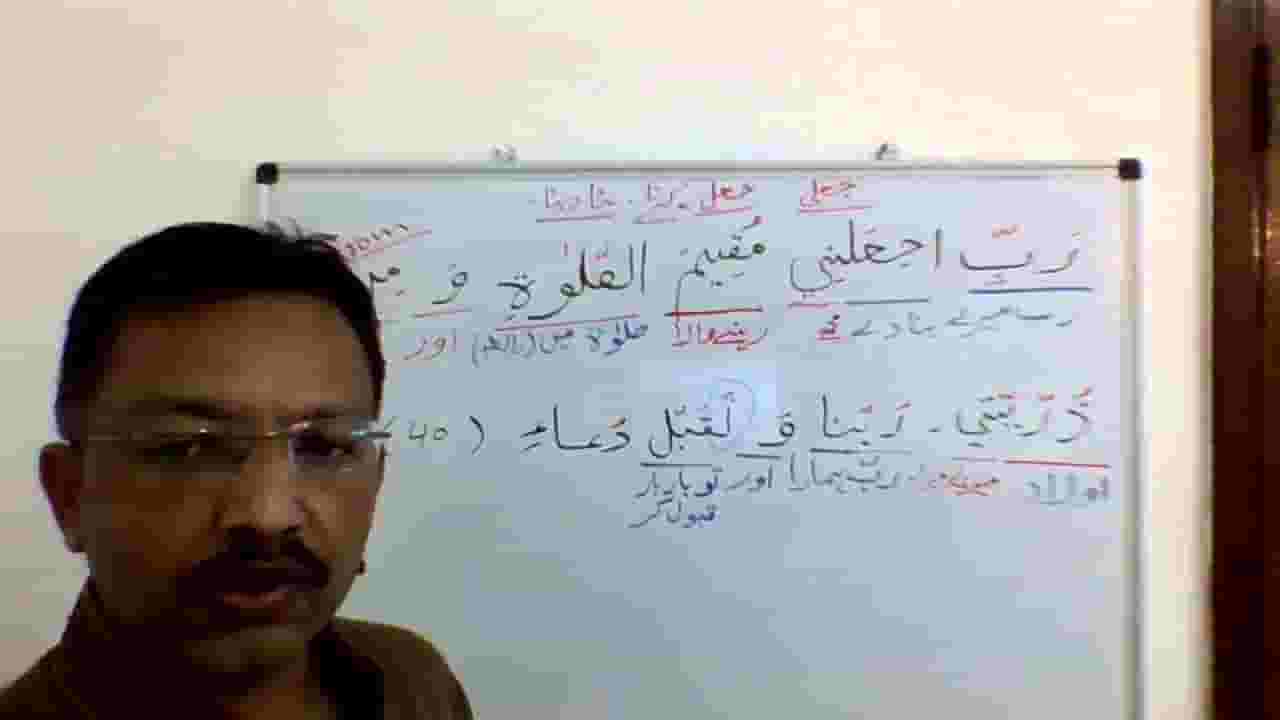 جعلی جعل کرنا۔ بنا دینا۔
رَبِّ اجعَلنِي مُقِيمَ الصَّلٰوةِ وَ مِن
رب میرے بنا دے مجھے رہنے والا صلوٰة میں اور
ذُرِّيَّتِي ۔ رَبَّنا وَ تَقَبَّل دُعاءِ (40
اولاد میری میں۔ ربّ ہمارا اور تو بار بار
قبول کر